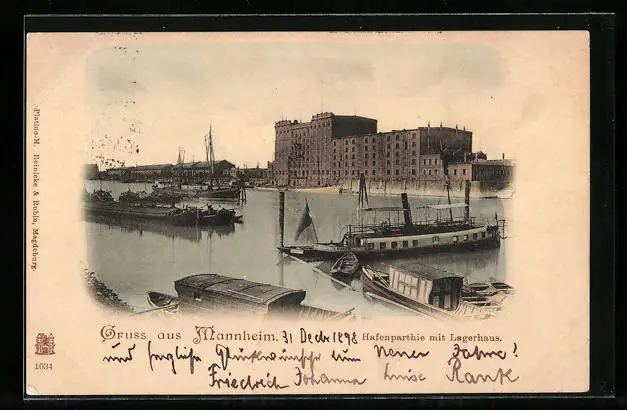 Platino-M. Reinicke & Rubin, Magdeburg.
Gruss aus Mannheim. 31 Decbr 1898 Hafenparthie mit Lagerhaus.
und herzliche Glückwünsche zum Neuen Jahre!
Friedrich Johanna Luise Rank
1034